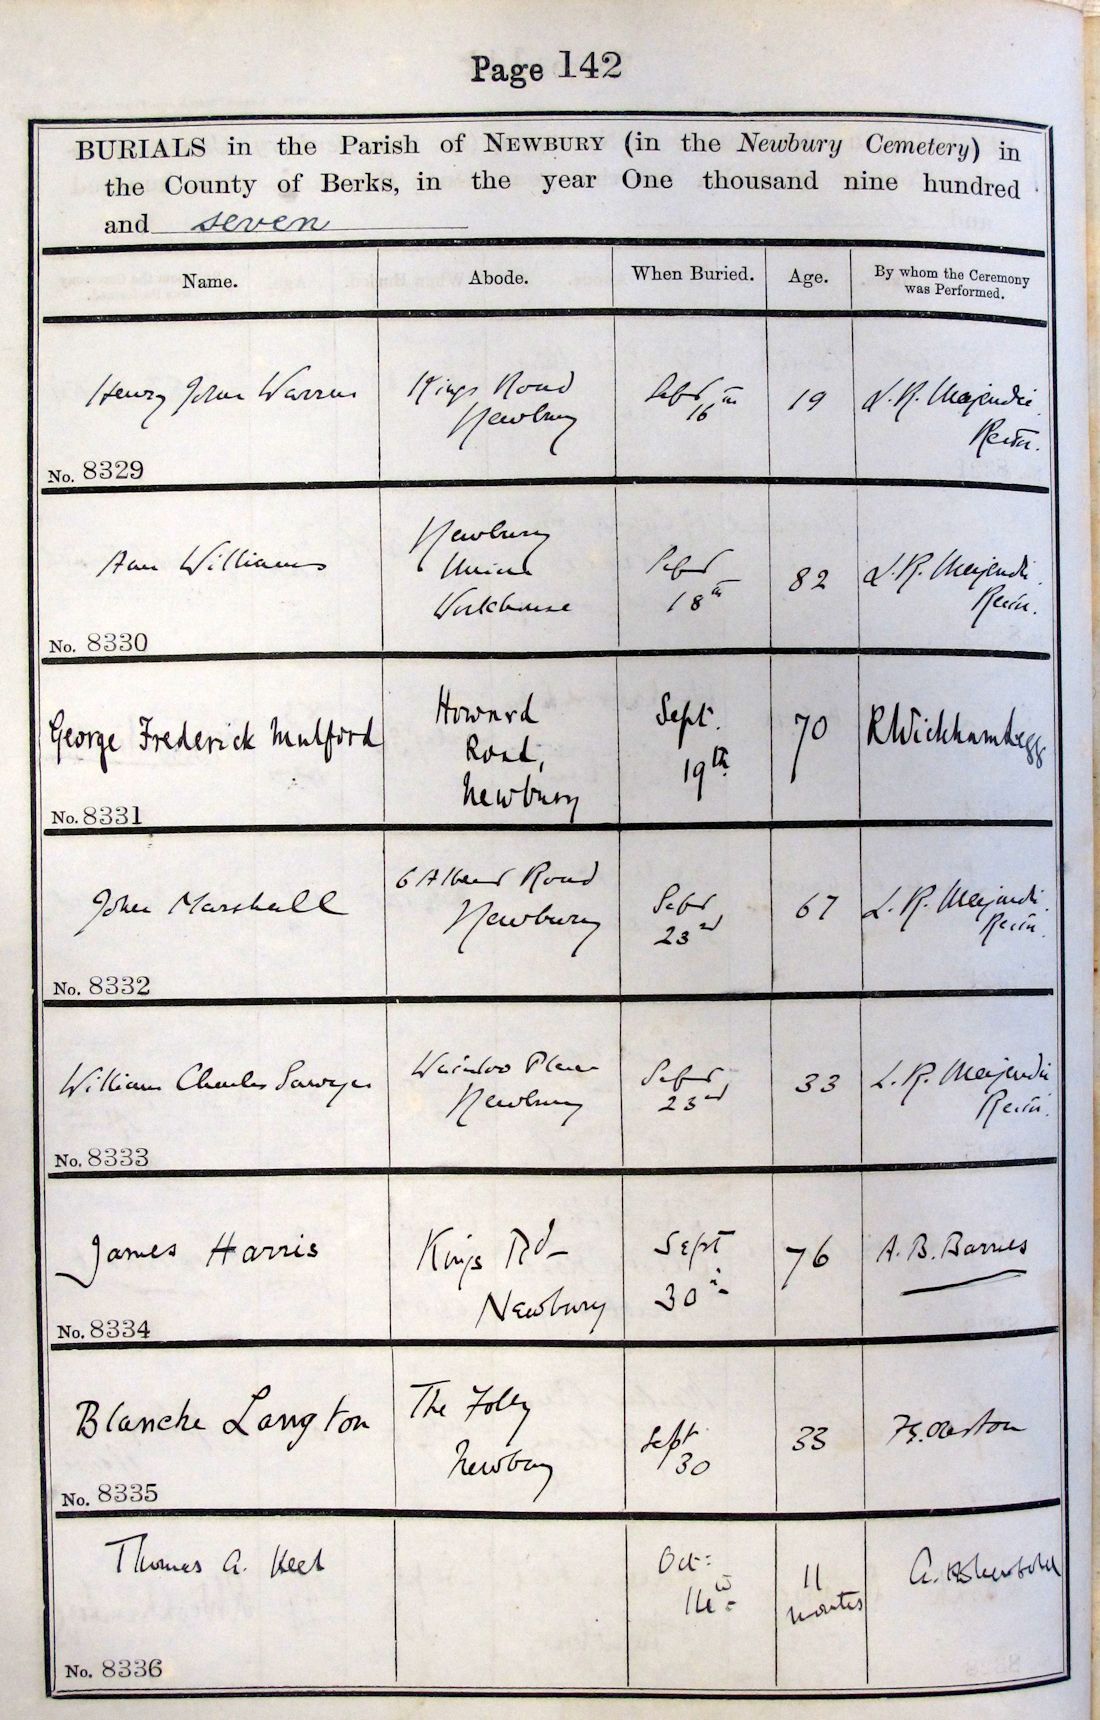 Page 142
BURIALS in the Parish of NEWBURY (in the Newbury Cemetery) in
the County of Berks, in the year One thousand nine hundred
and seven
Name.
Abode.
When Buried.
Age.
By whom the Ceremony
was Performed.
Henry John Warren
Kings Road
Newbury
Sept
16th
19
L. R. Majendie
Rector.
No. 8329
Ann Williams
Newbury
Union
Workhouse
Sept
18th
82
L. R. Majendie
Rector.
No. 8330
George Frederick Mulford
Howard
Road,
Newbury
Sept.
19th
70
R Wickham Legg
No. 8331
John Marshall
6 Albert Road
Newbury
Sept
23rd
67
L. R. Majendie
Rector.
No. 8332
William Charles Sawyer
Waterloo Place
Newbury
Sept
23rd
33
L. R. Majendie
Rector.
No. 8333
James Harris
Kings Rd
Newbury
Sept
30
76
A. B. Barnes
No. 8334
Blanche Langton
The Folly
Newbury
Sept
30
33
No. 8335
Thomas A. Keel
Oct:
11
months
A.
No. 8336